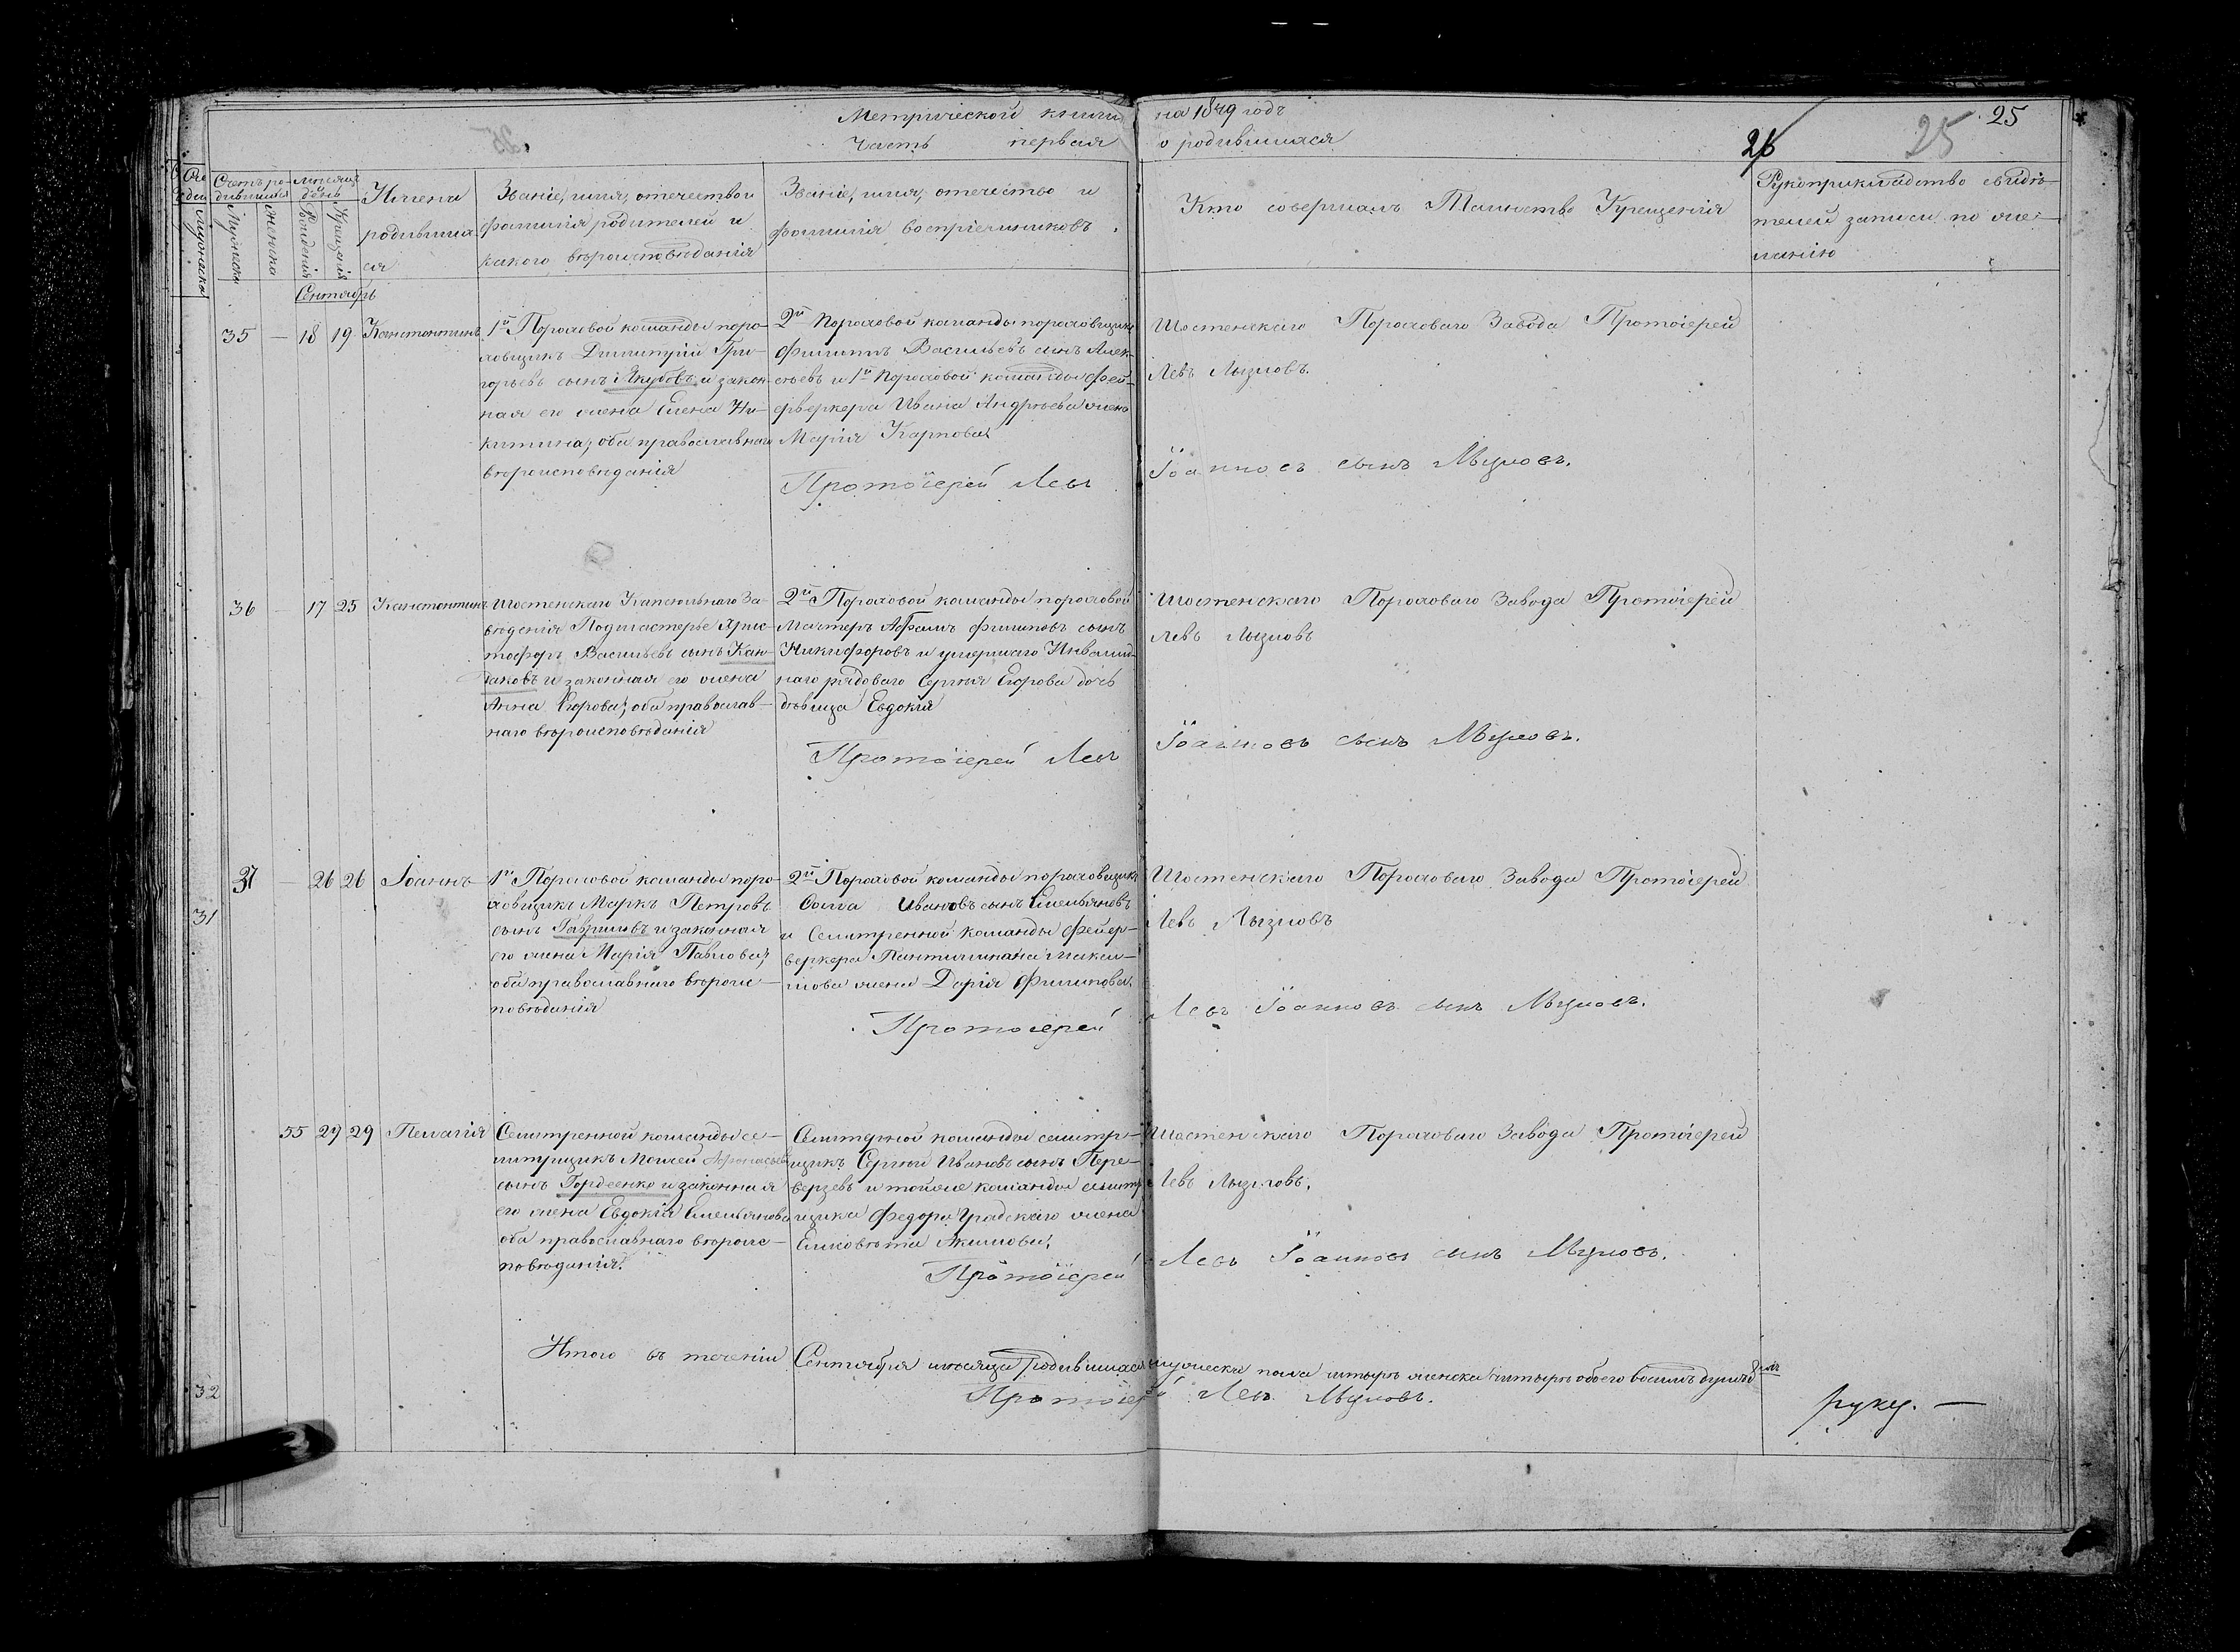 Метрической книги на 1849 годъ
Часть первая о родившихся
26 25 25
Счетъ родившихся
Мужеска
Женска
Месяцъ день
Рожденія
Крещенія
Имена родившихся
Званіе, имя, отечество и
фамилія родителей и
какого вѣроисповѣданія
Званіе, имя, отечество и
фамилія воспріемниковъ.
Кто совершалъ Таинство Крещенія
Рукоприкладство свидѣ-
телей записи по же-
ланію
Сентябрь
35 — 18 19 Константинъ
1й Пороховой команды поро-
ховщикъ Димитрій Гри-
горьевъ сынъ Якубовъ и закон-
ная его жена Елена Ни-
китина; оба православнаго
вѣроисповѣданія
2й Пороховой команды пороховщикъ
Филиппъ Васильевъ сынъ Алек-
сѣевъ и 1й Пороховой команды фей-
ерверкера Ивана Андрѣева жена
Марія Карпова.
Шостенскаго Пороховаго Завода Протоіерей
Левъ Лызловъ.
Протоіерей Левъ Іоанновъ сынъ Лызловъ.
36 — 17 25 Константинъ
Шостенскаго Капсюльнаго За-
веденія Подмастерье Хрис-
тофоръ Васильевъ сынъ Кан-
даковъ и законная его жена
Анна Егорова; оба православ-
наго вѣроисповѣданія
2й Пороховой команды пороховой
Мастеръ Афанъ Филиповъ сынъ
Никифоровъ и умершаго Инвалид-
наго рядоваго Сергѣя Егорова дочь
дѣвица Евдокія
Шостенскаго Пороховаго Завода Протоіерей
Левъ Лызловъ
Протоіерей Левъ Іоанновъ сынъ Лызловъ.
31
37 — 26 26 Іоаннъ
1й Пороховой команды поро-
ховщикъ Маркъ Петровъ
сынъ Гавриловъ и законная
его жена Марія Павлова;
оба православнаго вѣроис-
повѣданія
2й Пороховой команды пороховщикъ
Ѳома Ивановъ сынъ Емельяновъ
и Селитренной команды фейер-
веркера Пантилимона Макси-
мова жена Дарія Филипова.
Шостенскаго Пороховаго Завода Протоіерей
Левъ Лызловъ
Протоіерей Левъ Іоанновъ сынъ Лызловъ.
55 29 29 Пелагія
Селитренной команды се-
литрщикъ Моисей Афонасьевъ
сынъ Гордеенко и законная
его жена Евдокія Емельянова
оба православнаго вѣроис-
повѣданія.
Селитерной команды селитр-
щикъ Сергѣй Ивановъ сынъ Пере-
верзевъ и тойже команды селитр
щика Федора Градскаго жена
Елисовѣта Акимова.
Шостенскаго Пороховаго Завода Протоіерей
Левъ Лызловъ.
Протоіерей Левъ Іоанновъ сынъ Лызловъ.
Итого въ теченіи Сентября мѣсяца родившихся мужеска пола четыре женска четыре обоего восемь душъ
32
Протоіерей Левъ Лызловъ.
руку. —